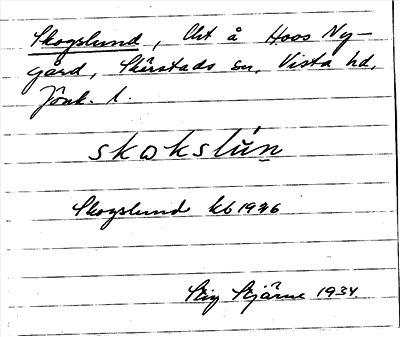 Skogslund, Lht å Hoos Ny-
gård, Skärstads sn, Vista hd,
Jönk. l.
skokslún
Skogslund kb 1926
Stig Stjärne 1934.